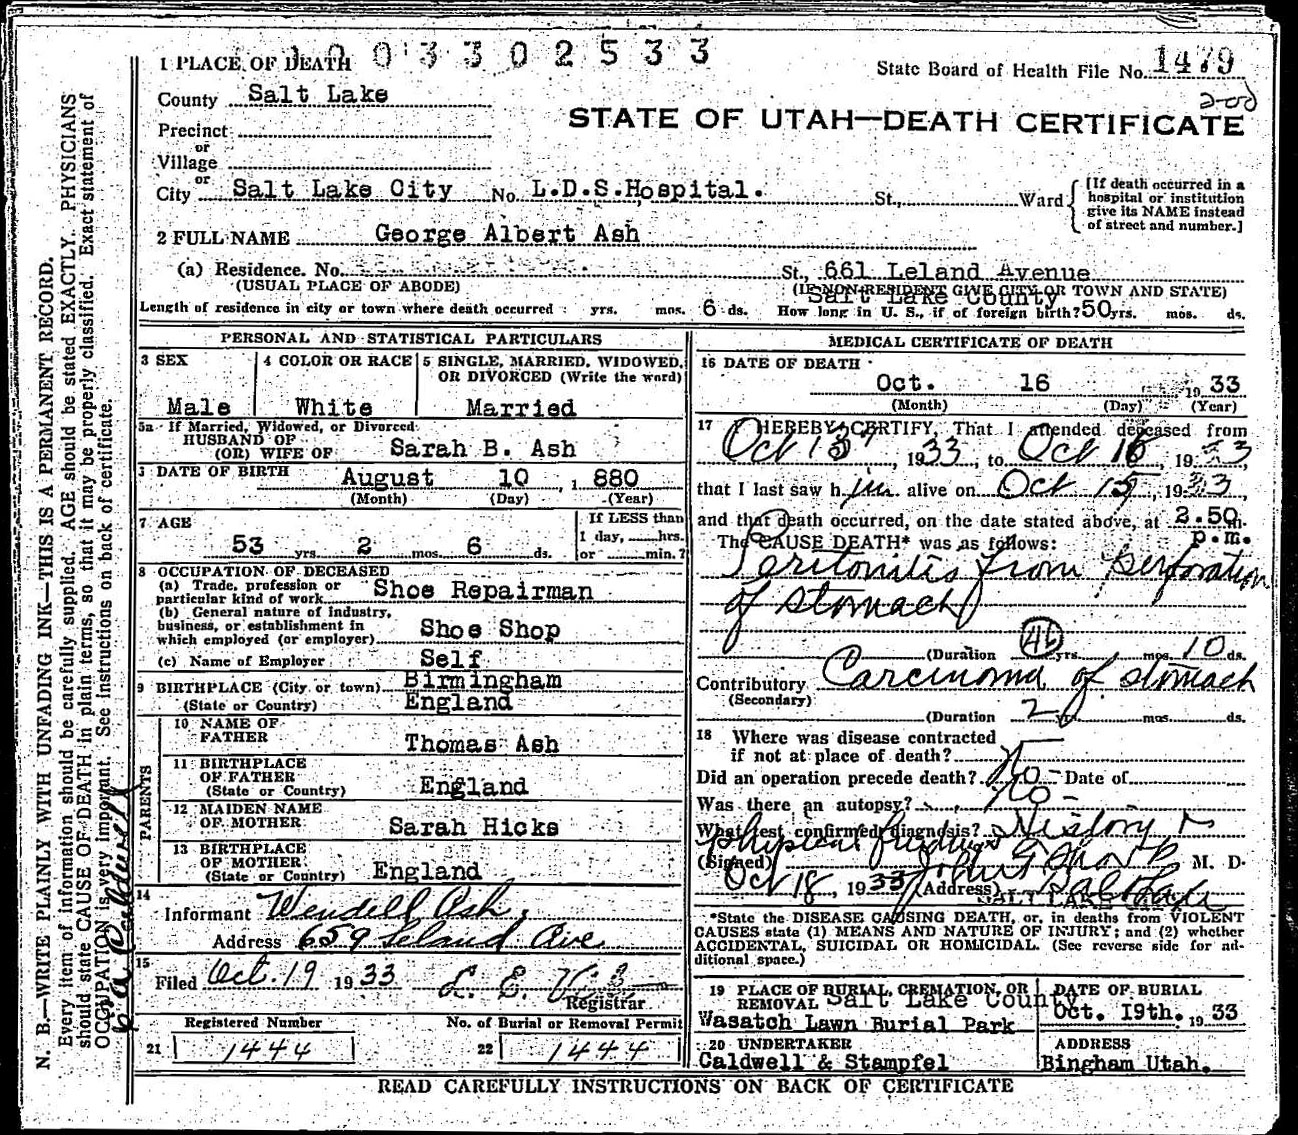 1003302533
1 PLACE OF DEATH
State Board of Health File No. 1479
200
County Salt Lake
STATE OF UTAH—DEATH CERTIFICATE
Precinct
or
Village
or
City Salt Lake City No. L.D.S.Hospital. St., Ward
[If death occurred in a
hospital or institution
give its NAME instead
of street and number.]
2 FULL NAME George Albert Ash
(a) Residence. No. St., 661 Leland Avenue
(USUAL PLACE OF ABODE) (IF NON-RESIDENT GIVE CITY OR TOWN AND STATE)
Salt Lake County
Length of residence in city or town where death occurred yrs. mos. 6 ds. How long in U. S., if of foreign birth? 50 yrs. mos. ds.
PERSONAL AND STATISTICAL PARTICULARS
3 SEX
Male
4 COLOR OR RACE
White
5 SINGLE, MARRIED, WIDOWED,
OR DIVORCED (Write the word)
Married
5a If Married, Widowed, or Divorced
HUSBAND OF
(OR) WIFE OF Sarah B. Ash
DATE OF BIRTH August 10, 1880
(Month) (Day) (Year)
7 AGE
53 yrs. 2 mos. 6 ds.
If LESS than
1 day, hrs.
or min.?
8 OCCUPATION OF DECEASED
(a) Trade, profession or
particular kind of work Shoe Repairman
(b) General nature of industry,
business, or establishment in
which employed (or employer) Shoe Shop
(c) Name of Employer Self
9 BIRTHPLACE (City or town) Birmingham
(State or Country) England
PARENTS
10 NAME OF
FATHER Thomas Ash
11 BIRTHPLACE
OF FATHER
(State or Country) England
12 MAIDEN NAME
OF MOTHER Sarah Hicks
13 BIRTHPLACE
OF MOTHER
(State or Country) England
14
Informant Wendell Ash,
Address 659 Leland Ave
15
Filed Oct. 19 1933
Registrar
Registered Number
21 1444
No. of Burial or Removal Permit
22 1444
MEDICAL CERTIFICATE OF DEATH
16 DATE OF DEATH
Oct. 16 1933
(Month) (Day) (Year)
17 I HEREBY CERTIFY, That I attended deceased from
Oct 1933, to Oct 16, 1933
that I last saw him alive on Oct 15, 1933,
and that death occurred, on the date stated above, at 2.50 m.
p.m.
The CAUSE DEATH* was as follows:
Peritonitis from perforation
of stomach
46
(Duration yrs. mos. 10 ds.
Contributory Carcinoma of stomach
(Secondary)
(Duration 2 yrs. mos. ds.
18 Where was disease contracted
if not at place of death?
Did an operation precede death? No - Date of
Was there an autopsy? No -
What test confirmed diagnosis? History &
physical findings
(Signed) John M. D.
Oct 18, 1933 (Address)
SALT LAKE
*State the DISEASE CAUSING DEATH, or, in deaths from VIOLENT
CAUSES state (1) MEANS AND NATURE OF INJURY; and (2) whether
ACCIDENTAL, SUICIDAL OR HOMICIDAL. (See reverse side for ad-
ditional space.)
19 PLACE OF BURIAL, CREMATION, OR
REMOVAL Salt Lake County
Wasatch Lawn Burial Park
DATE OF BURIAL
Oct. 19th. 1933
20 UNDERTAKER
Caldwell & Stampfel
ADDRESS
Bingham Utah.
READ CAREFULLY INSTRUCTIONS ON BACK OF CERTIFICATE
N. B.—WRITE PLAINLY WITH UNFADING INK—THIS IS A PERMANENT RECORD.
Every item of information should be carefully supplied. AGE should be stated EXACTLY. PHYSICIANS
should state CAUSE OF DEATH in plain terms, so that it may be properly classified. Exact statement of
OCCUPATION is very important. See instructions on back of certificate.
Caldwell